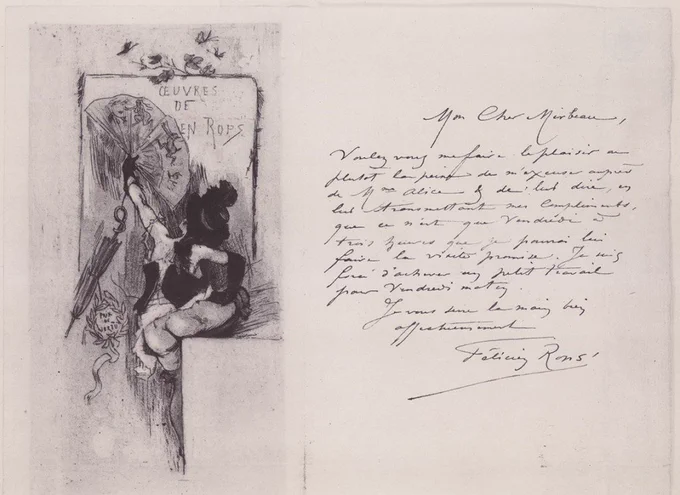 ŒUVRES
DE
EN ROPS
Mon Cher Mirbeau,
Voulez vous me faire le plaisir ou
plutot la peine de m'excuser auprès
de Mme Alice & de lui dire, en
lui transmettant mes compliments,
que ce n'est que Vendredi à
trois heures que je pourrai lui
faire la visite promise. Je suis
forcé d'achever un petit travail
pour Vendredi matin.
Je vous serre la main bien
affectueusement
Félicien Rops